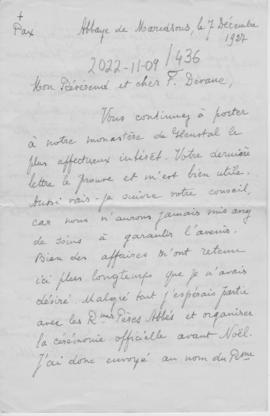 +
Pax
Abbaye de Maredsous, le 7 Décembre
1927
2022-11-09/436
Mon Révérend et cher F. Devane,
Vous continuez à porter
à notre monastère de Glenstal le
plus affectueux intérêt. Votre dernière
lettre le prouve et m'est bien utile.
Aussi vais-je suivre votre conseil,
car nous n'aurons jamais mis
de soins à garantir l'avenir.
Bien des affaires m'ont retenu
ici plus longtemps que je n'avais
désiré. Malgré tout j'espérais partir
avec les Rmes Pères Abbés et organiser
la cérémonie officielle avant Noël.
J'ai donc envoyé au nom du Rme